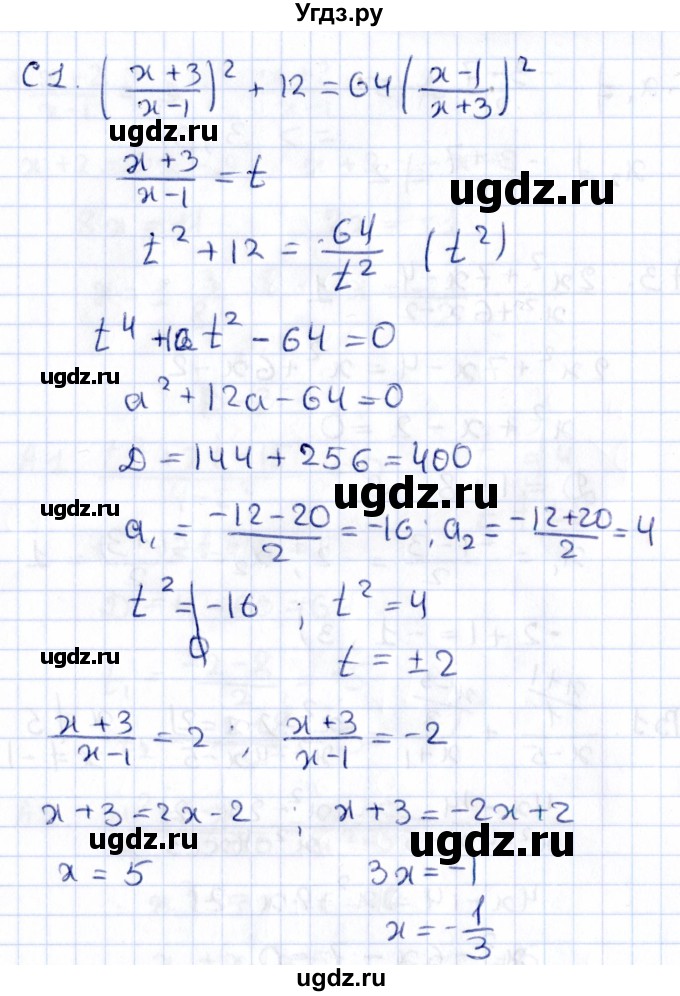 Угдз.ру
C1. ((x+3)/(x-1))² + 12 = 64((x-1)/(x+3))²
ugdz.ru
(x+3)/(x-1) = t
ugdz.ru
t² + 12 = 64/t² (t²)
t⁴ + 12t² - 64 = 0
ugdz.ru
a² + 12a - 64 = 0
D = 144 + 256 = 400
ugdz.ru
ugdz.ru
a₁ = (-12-20)/2 = -16; a₂ = (-12+20)/2 = 4
t² = -16 ; t² = 4
ugdz.ru
t = ±2
(x+3)/(x-1) = 2 ; (x+3)/(x-1) = -2
x + 3 = 2x - 2 ; x + 3 = -2x + 2
ugdz.ru
ugdz.ru
x = 5 3x = -1
x = -1/3
ugdz.ru